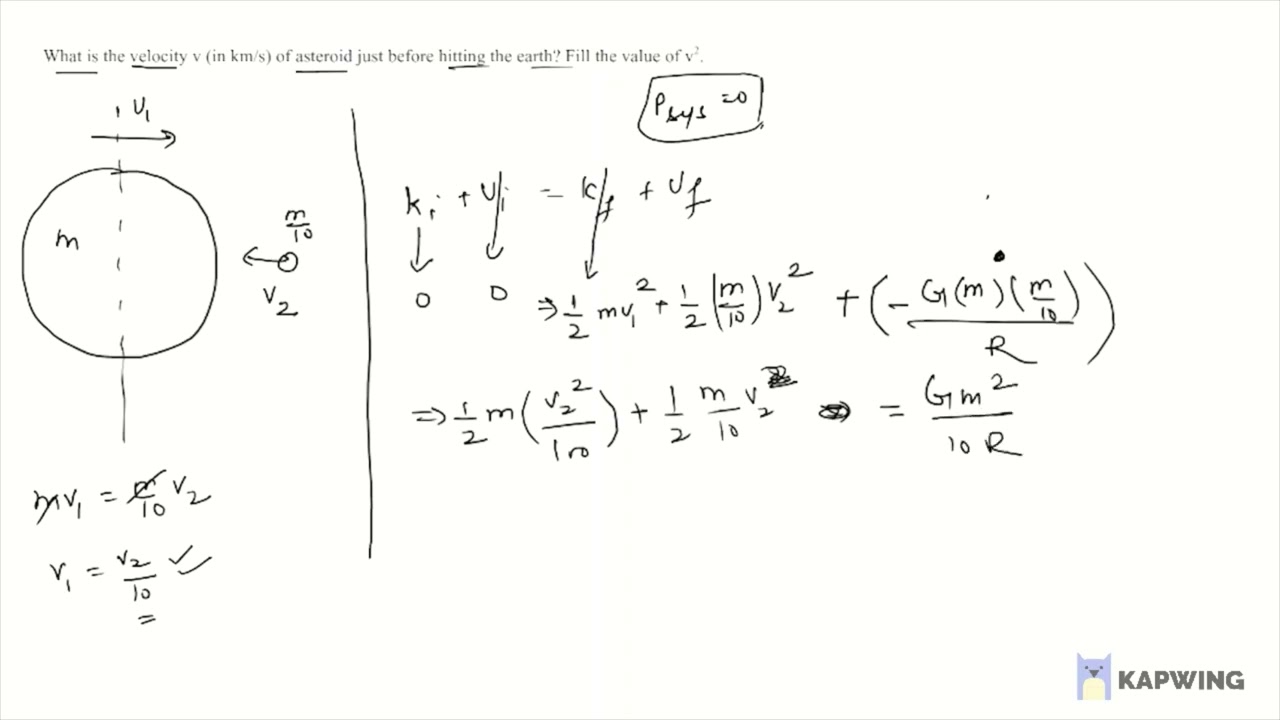 What is the velocity v (in km/s) of asteroid just before hitting the earth? Fill the value of v².
P_sys = 0
v₁
k_i + U_i = k_f + U_f
m
m/10
v₂
0 0 ⇒ 1/2 mv₁² + 1/2 (m/10) v₂² + (- G(m)(m/10) / R)
⇒ 1/2 m (v₂²/100) + 1/2 m/10 v₂² = Gm²/10R
mv₁ = m/10 v₂
v₁ = v₂/10 ✓
=
KAPWING